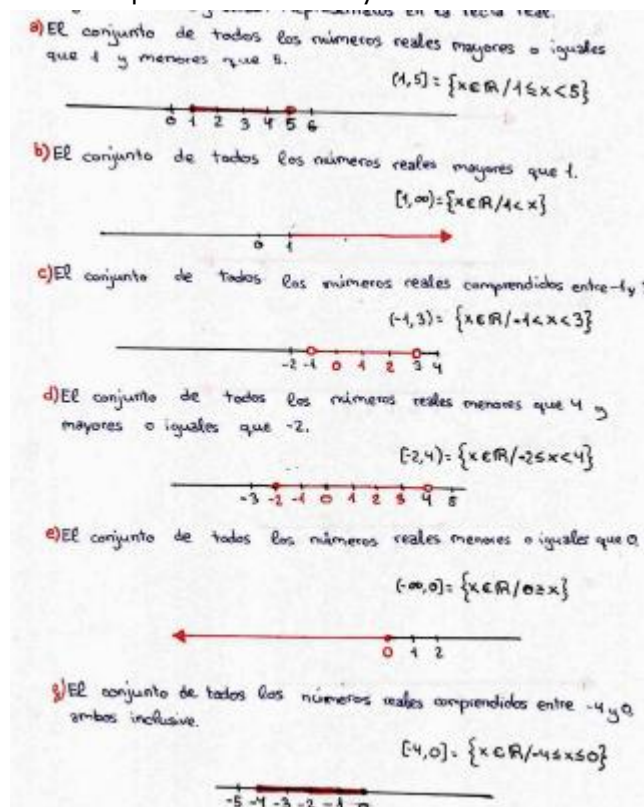 a) El conjunto de todos los números reales mayores o iguales
que 1 y menores que 5.
(1,5] = {x∈R/1≤x<5}
0 1 2 3 4 5 6
b) El conjunto de todos los números reales mayores que 1.
[1,∞) = {x∈R/1<x}
0 1
c) El conjunto de todos los números reales comprendidos entre -1 y
(-1,3) = {x∈R/-1<x<3}
-2 -1 0 1 2 3 4
d) El conjunto de todos los números reales menores que 4 y
mayores o iguales que -2.
[-2,4) = {x∈R/-2≤x<4}
-3 -2 -1 0 1 2 3 4 5
e) El conjunto de todos los números reales menores o iguales que 0
(-∞,0] = {x∈R/0≥x}
0 1 2
El conjunto de todos los números reales comprendidos entre -4 y 0,
ambos inclusive.
[-4,0] = {x∈R/-4≤x≤0}
-5 -4 -3 -2 -1